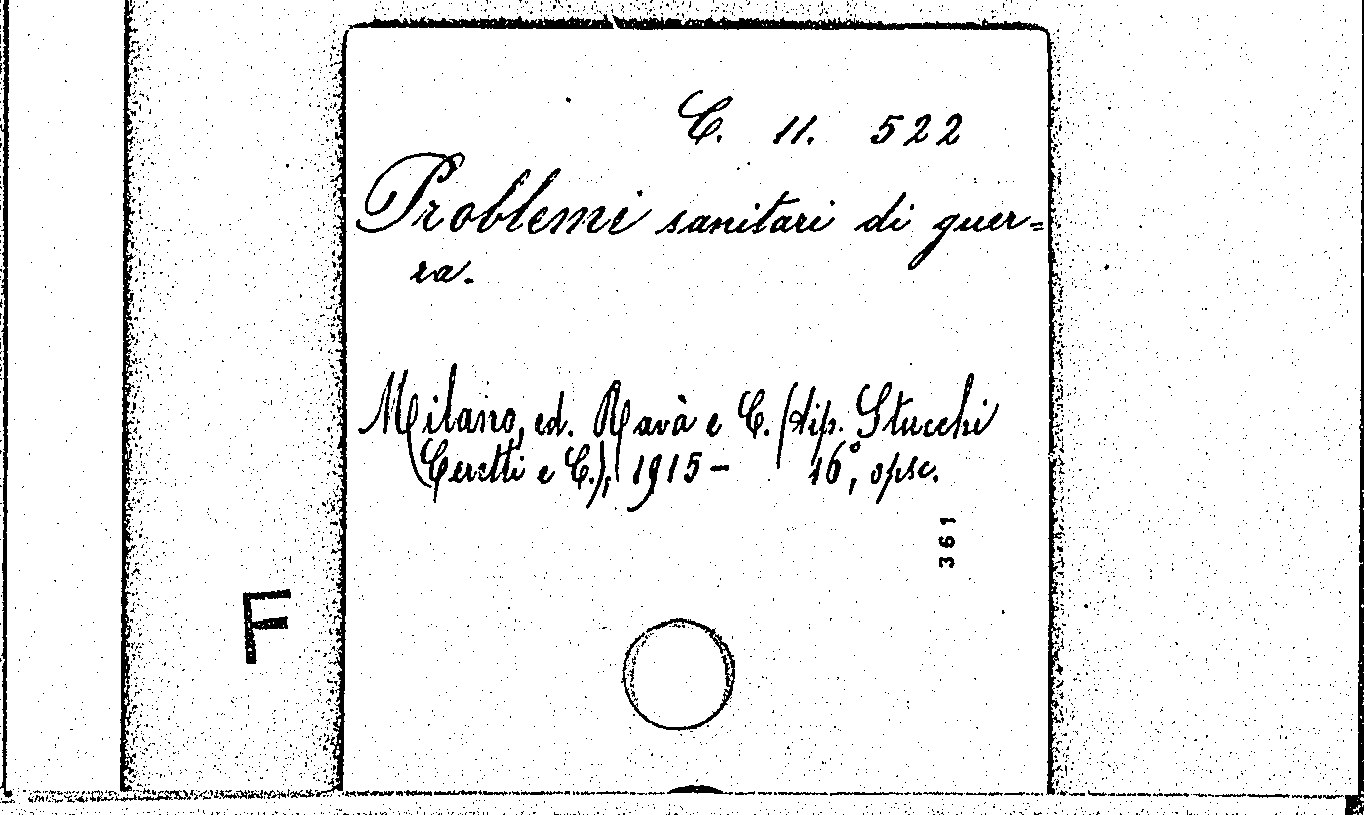 C. 11. 522
Problemi sanitari di guer=
ra.
Milano, ed. Ravà e C. (tip. Stucchi
Ceretti e C.), 1915 - 16°, opsc.
361
F